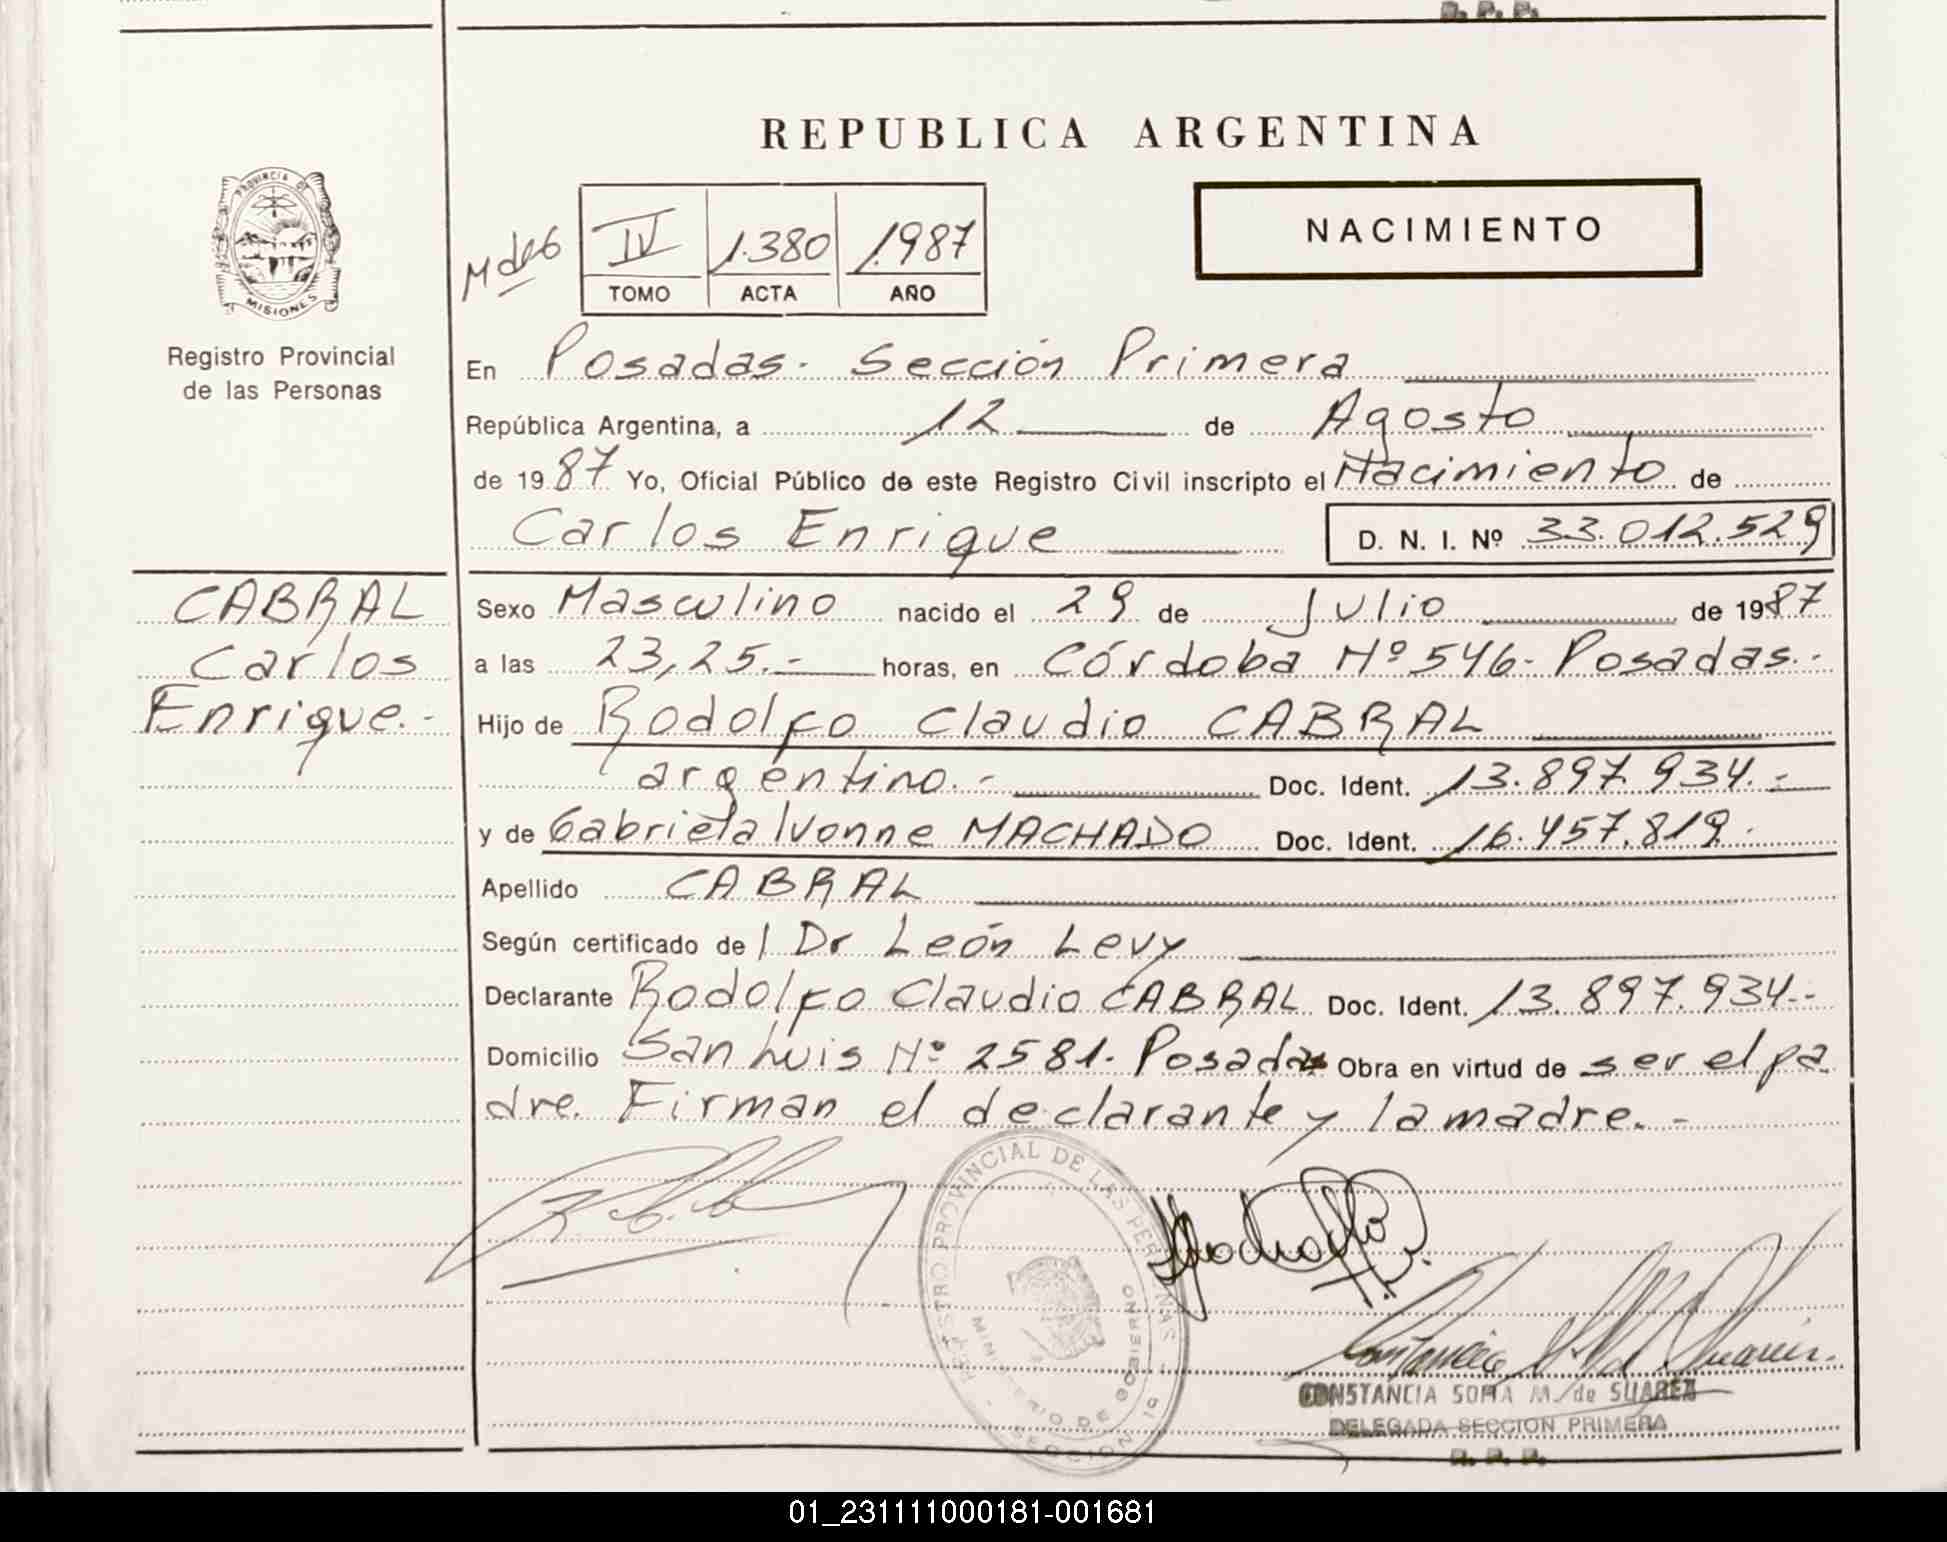 R. P. P.
REPUBLICA ARGENTINA
PROVINCIA DE
MISIONES
Registro Provincial
de las Personas
NACIMIENTO
IV 1.380 1.987
TOMO ACTA AÑO
En Posadas. Sección Primera
República Argentina, a 12 de Agosto
de 1987 Yo, Oficial Público de este Registro Civil inscripto el Nacimiento de
Carlos Enrique D. N. I. Nº 33.012.529
CABRAL
Carlos
Enrique.-
Sexo Masculino nacido el 29 de Julio de 1987
a las 23,25.- horas, en Córdoba Nº 546- Posadas.-
Hijo de Rodolfo Claudio CABRAL
argentino.- Doc. Ident. 13.897.934.-
y de Gabriela Ivonne MACHADO Doc. Ident. 16.457.819.
Apellido CABRAL
Según certificado de l Dr León Levy
Declarante Rodolfo Claudio CABRAL Doc. Ident. 13.897.934.-
Domicilio San Luis Nº 2581. Posadas Obra en virtud de ser el pa
dre. Firman el declarante y la madre.-
REGISTRO PROVINCIAL DE LAS PERSONAS
MINISTERIO DE GOBIERNO
SECCION 1a
CONSTANCIA SOFIA M. de SUAREZ
DELEGADA SECCION PRIMERA
R. P. P.
01_231111000181-001681